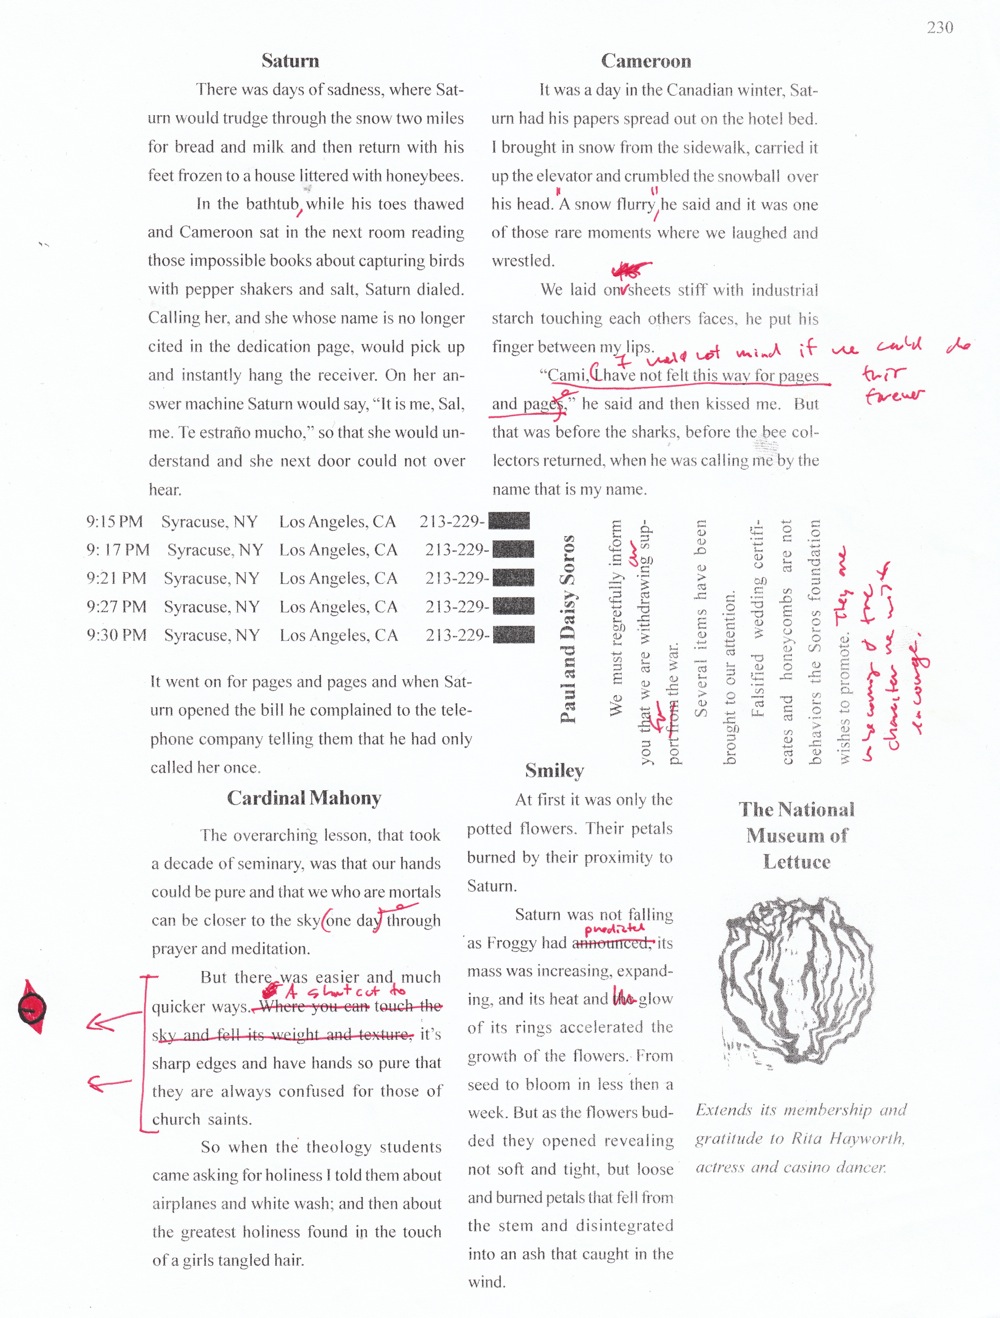 230
Saturn
There was days of sadness, where Sat-
urn would trudge through the snow two miles
for bread and milk and then return with his
feet frozen to a house littered with honeybees.
In the bathtub, while his toes thawed
and Cameroon sat in the next room reading
those impossible books about capturing birds
with pepper shakers and salt, Saturn dialed.
Calling her, and she whose name is no longer
cited in the dedication page, would pick up
and instantly hang the receiver. On her an-
swer machine Saturn would say, “It is me, Sal,
me. Te estraño mucho,” so that she would un-
derstand and she next door could not over
hear.
9:15 PM Syracuse, NY Los Angeles, CA 213-229-
9: 17 PM Syracuse, NY Los Angeles, CA 213-229-
9:21 PM Syracuse, NY Los Angeles, CA 213-229-
9:27 PM Syracuse, NY Los Angeles, CA 213-229-
9:30 PM Syracuse, NY Los Angeles, CA 213-229-
It went on for pages and pages and when Sat-
urn opened the bill he complained to the tele-
phone company telling them that he had only
called her once.
Cameroon
It was a day in the Canadian winter, Sat-
urn had his papers spread out on the hotel bed.
I brought in snow from the sidewalk, carried it
up the elevator and crumbled the snowball over
his head. "A snow flurry," he said and it was one
of those rare moments where we laughed and
wrestled.
We laid on sheets stiff with industrial
starch touching each others faces, he put his
finger between my lips.
I would not mind if we could do
this
forever
“Cami, I have not felt this way for pages
and pages,” he said and then kissed me. But
that was before the sharks, before the bee col-
lectors returned, when he was calling me by the
name that is my name.
Paul and Daisy Soros
We must regretfully inform
you that we are withdrawing our sup-
port from for the war.
Several items have been
brought to our attention.
Falsified wedding certifi-
cates and honeycombs are not
behaviors the Soros foundation
wishes to promote. They are
unbecoming of the
character we wish to
encourage.
Cardinal Mahony
The overarching lesson, that took
a decade of seminary, was that our hands
could be pure and that we who are mortals
can be closer to the sky one day through
prayer and meditation.
But there was easier and much
A shortcut to
quicker ways. Where you can touch the
sky and fell its weight and texture, it’s
sharp edges and have hands so pure that
they are always confused for those of
church saints.
So when the theology students
came asking for holiness I told them about
airplanes and white wash; and then about
the greatest holiness found in the touch
of a girls tangled hair.
Smiley
At first it was only the
potted flowers. Their petals
burned by their proximity to
Saturn.
Saturn was not falling
predicted
as Froggy had announced, its
mass was increasing, expand-
ing, and its heat and the glow
of its rings accelerated the
growth of the flowers. From
seed to bloom in less then a
week. But as the flowers bud-
ded they opened revealing
not soft and tight, but loose
and burned petals that fell from
the stem and disintegrated
into an ash that caught in the
wind.
The National
Museum of
Lettuce
Extends its membership and
gratitude to Rita Hayworth,
actress and casino dancer.